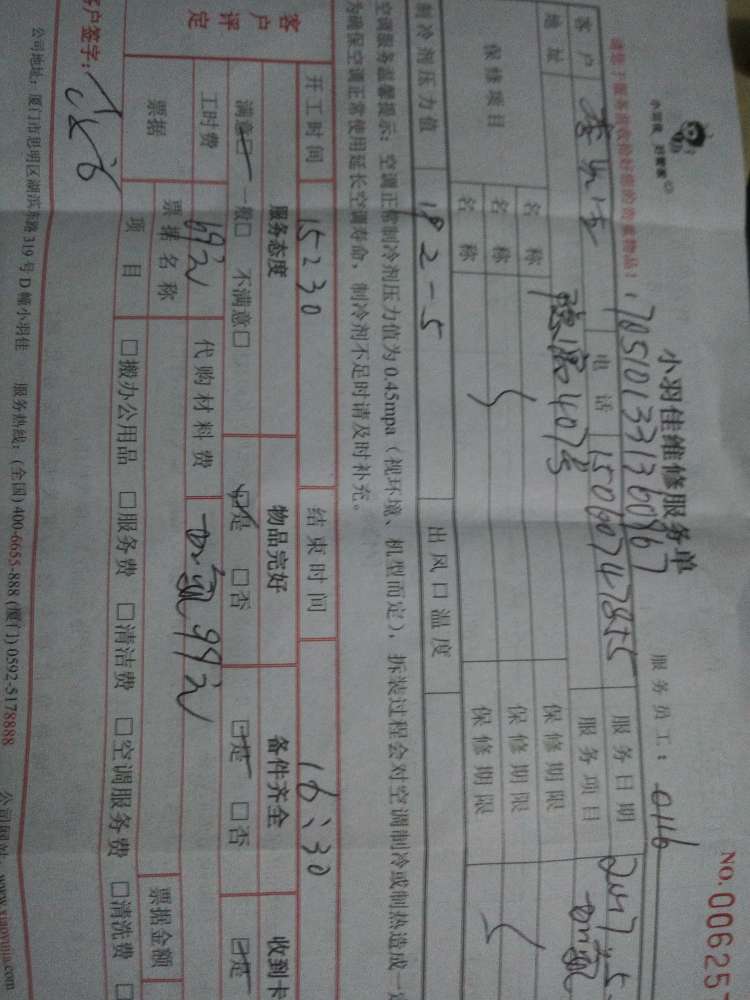 小羽佳 好管家
小羽佳维修服务单
NO.006257
1705101331360967
服务员工: 0116
客户 电话 15060747855 服务日期 2017.5.5
地址 407号 服务项目 加氟
保修项目 名称 保修期限
名称 保修期限
名称 保修期限
制冷剂压力值 192-5 出风口温度
空调服务温馨提示: 空调正常制冷剂压力值为0.45mpa (视环境、机型而定), 拆装过程会对空调制冷或制热造成一定
为确保空调正常使用延长空调寿命, 制冷剂不足时请及时补充。
开工时间 15:30 结束时间 16:30
客户评定 服务态度 物品完好 备件齐全 收到卡
满意☑ 一般□ 不满意□ ☑是 □否 ☑是 □否 ☑是
工时费 69元 代购材料费 加氟99元
票据 票据名称 票据金额
项目 □搬办公用品 □服务费 □清洁费 □空调服务费 □清洗费 □
客户签字:
公司地址: 厦门市思明区湖滨东路319号D幢小羽佳 服务热线: (全国) 400-6655-888 (厦门) 0592-5178888 公司网站: www.xiaoyujia.com